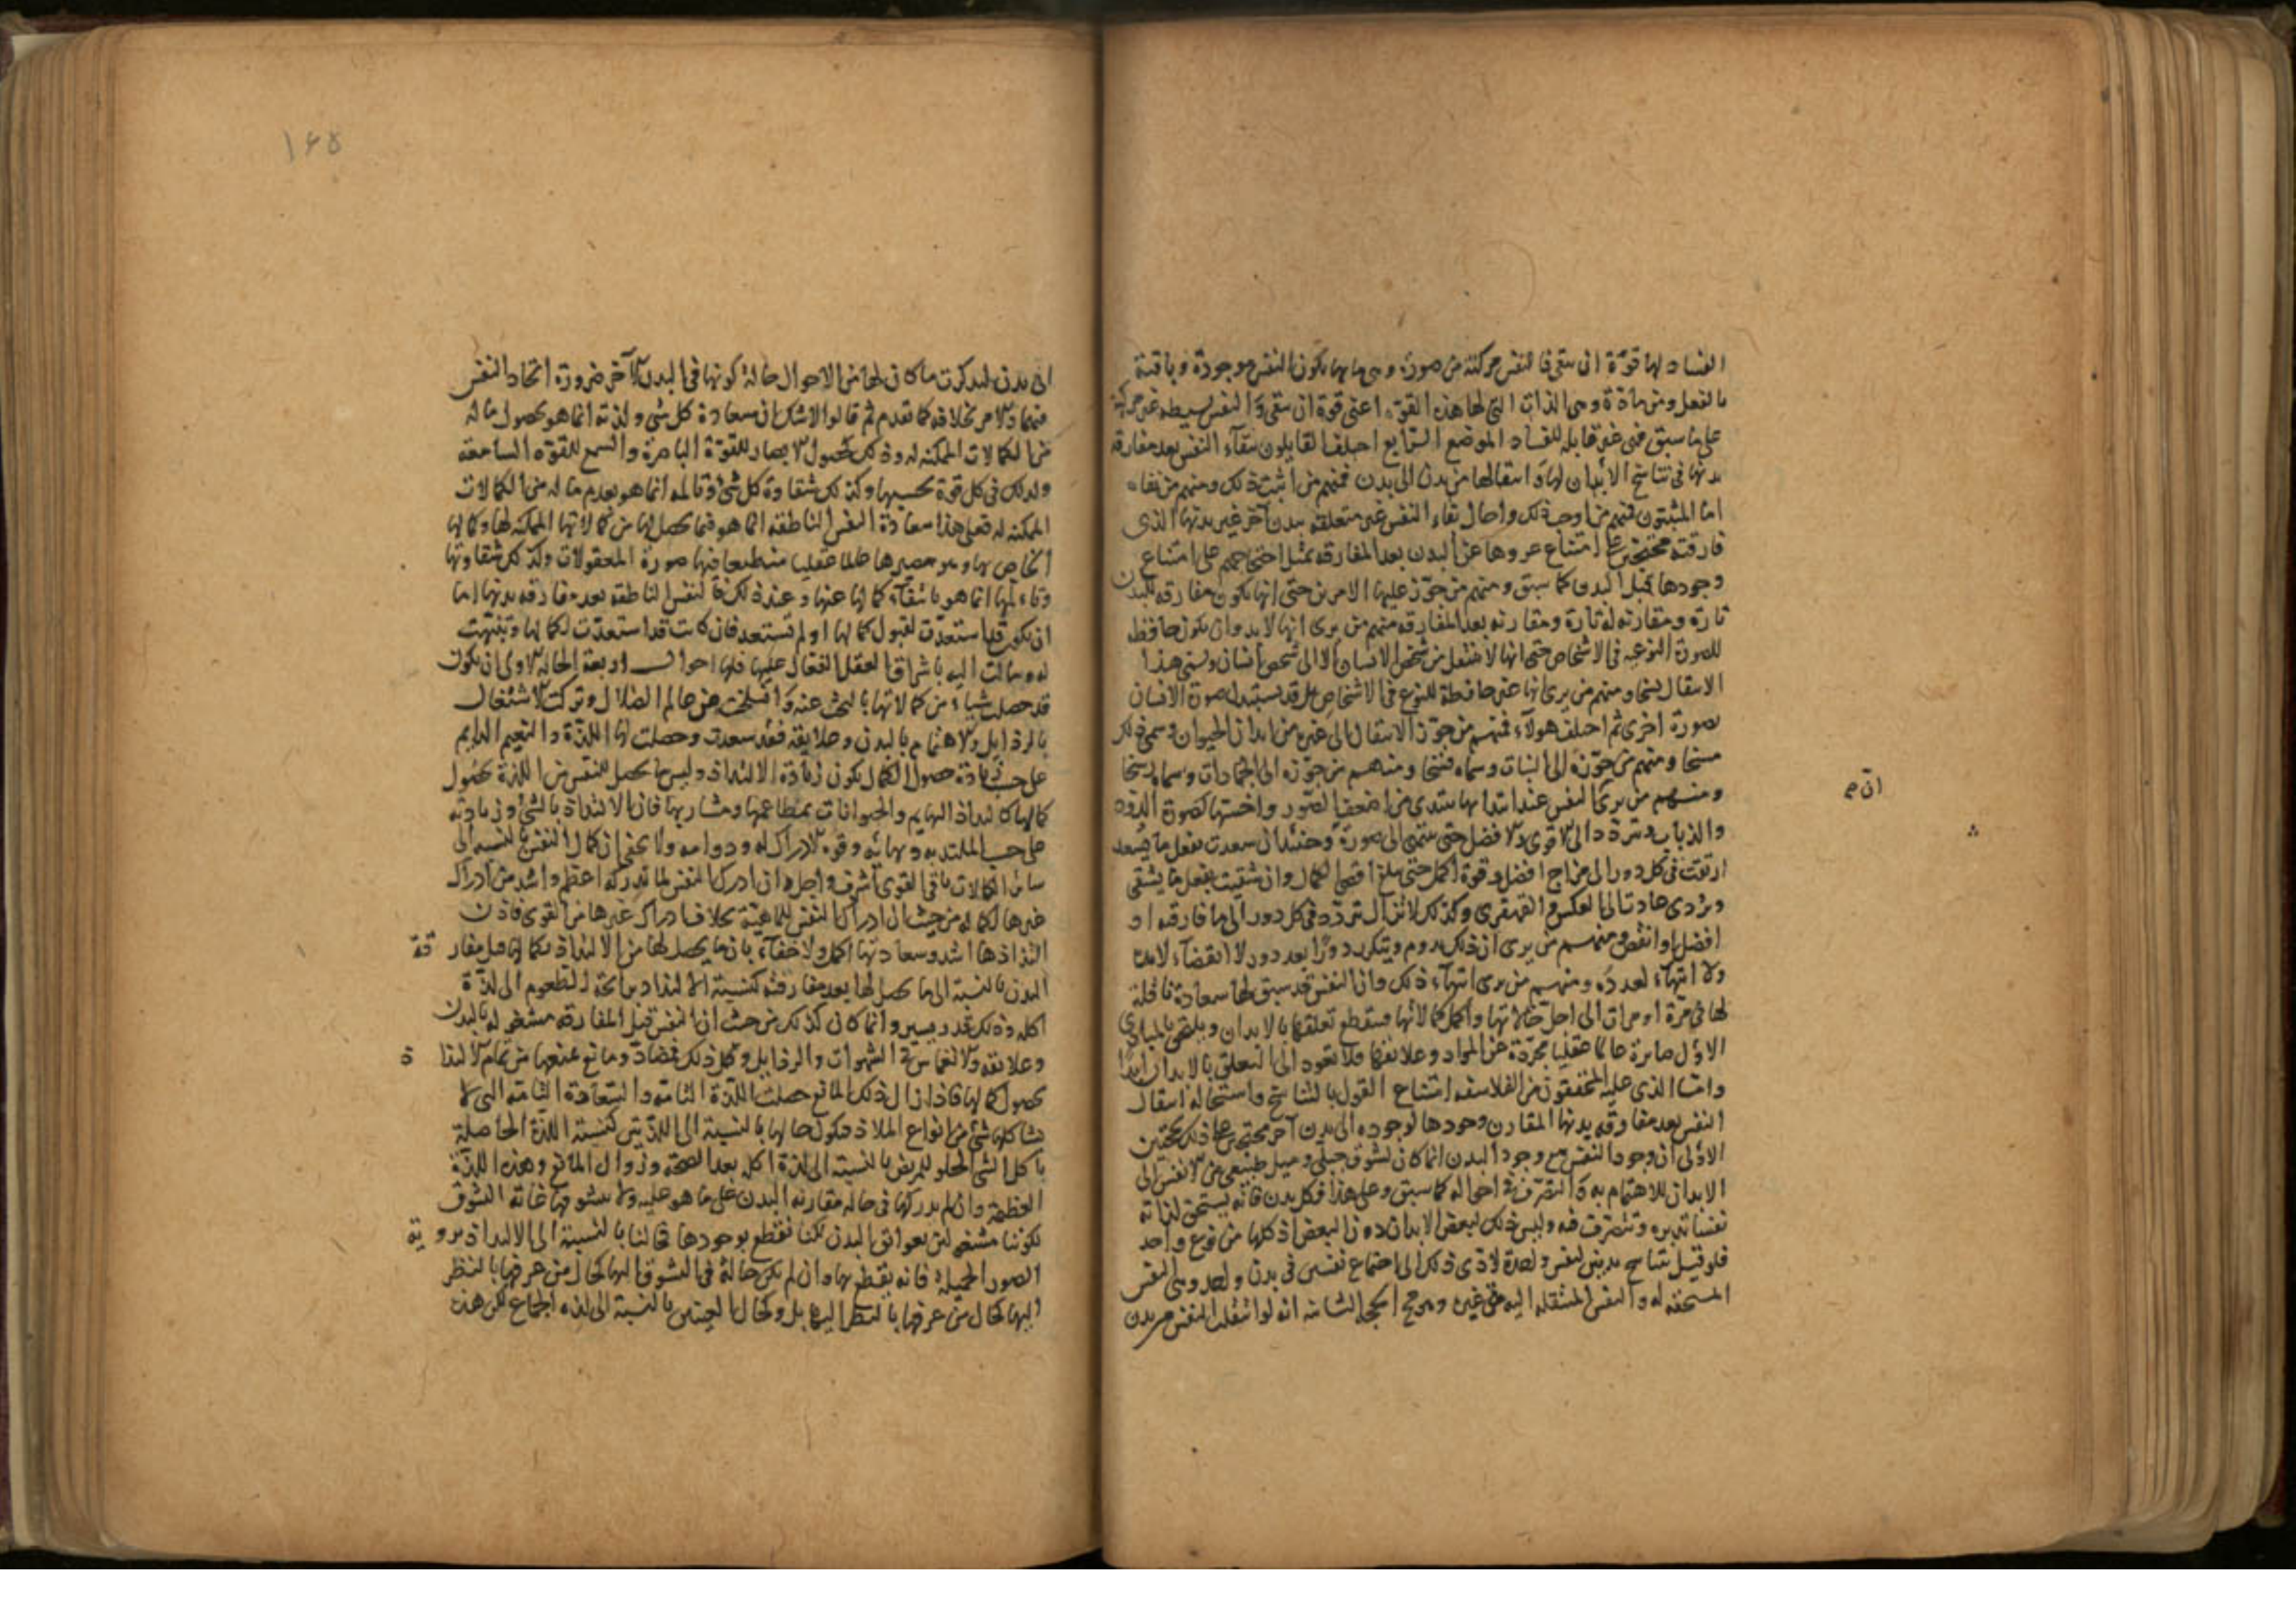 الفساد لها قوة ان تبقى فالنفس مركبة من صورة وهى ما بها يكون النفس موجودة وباقية
بالفعل ومن مادة وهى الذات التى لها هذه القوة اعنى قوة ان تبقى والنفس بسيطه غير مركبة
على ما سبق فهى غير قابله للفساد الموضع الرابع اختلف القايلون ببقاء النفس بعد مفارقة
بدنها فى تناسخ الابدان لها وانتقالها من بدن الى بدن فمنهم من اثبت ذلك ومنهم من نفاه
اما المثبتون فمنهم من اوجب ذلك واحال بقاء النفس غير متعلقه ببدن آخر غير بدنها الذى
فارقته محتجين على امتناع عروها عن البدن بعد المفارقه بمثل احتجاجهم على امتناع
وجودها قبل البدن كما سبق ومنهم من جوز عليها الامرين حتى انها تكون مفارقه للبدن
تارة ومقارنه له تارة ومقارنه بعد المفارقه فمنهم من يرى انها لا بد وان تكون حافظه
للصورة النوعيه فى الاشخاص حتى انها لا تنتقل من شخص الانسان الا الى شخص انسان ويسمى هذا
الانتقال نسخا ومنهم من يرى انها غير حافظة للنوع فى الاشخاص بل قد يستبدل صورة الانسان
بصورة اخرى ثم اختلف هولاء فمنهم من جوز الانتقال الى غيره من ابدان الحيوان وسمى ذلك
مسخا ومنهم من جوزه الى النبات وسماه فسخا ومنهم من جوزه الى الجمادات وسماه رسخا
ومنهم من يرى النفس عند ابتدائها تبتدى من اضعف الصور واخستها كصورة الدوده
والذباب وتتردد الى الاقوى والافضل حتى تنتهى الى صورة وحينئذ ان سعدت بفعل ما يسعد
ارتقت فى كل دور الى مزاج افضل وقوة اكمل حتى يبلغ اقصى الكمال وان شقيت بفعل ما يشقى
افضل او انقص ومنهم من يرى ان ذلك يدوم ويتكرر دورا بعد دور لا انقضاء لامده
ولا انتهاء لعدده ومنهم من يرى انتهاء ذلك وان النفس قد سبق لها سعادة
لها فى مرة او مرات الى اجل حالاتها واكمل كمالاتها فينقطع تعلقها بالابدان ويلتحق بالمبادى
الاول صايرة عالما عقليا مجردة عن المواد وعلائقها فلا تعود الى التعلق بالابدان ابدا
وامـا الذى عليه المحققون من الفلاسفه امتناع القول بالتناسخ واستحالة انتقال
النفس بعد مفارقه بدنها المقارن وجودها لوجوده الى بدن آخر محتجين على ذلك بحجتين
الاولى ان وجود النفس مع وجود البدن انما كان لشوق جبلى وميل طبيعى من الانفس الى
الابدان للاهتمام به والتصرف فى احواله كما سبق وعلى هذا فكل بدن فانه يستحق لذاته
نفسا تدبره وتتصرف فيه وليس ذلك لبعض الابدان دون البعض اذ كلها من نوع واحد
فلو قيل بتناسخ بدنين لنفس واحدة لادى ذلك الى اجتماع نفسين فى بدن واحد وهى النفس
المستحقه له والنفس المنتقله اليه من غيره الحجة الثانيه انه لو انتقلت النفس من بدن
ان صح
١٦٥
الى بدن لتذكرت ما كان لها من الاحوال حالة كونها فى البدن الآخر ضرورة اتحاد النفس
فيهما والامر بخلافه كما تقدم ثم قالوا لا شك ان سعادة كل شى ولذته انما هو بحصول ما له
من الكمالات الممكنه له وذلك كحصول الابصار للقوة الباصرة والسمع للقوة السامعه
وكذلك فى كل قوة بحسبها وكذلك شقاوة كل شى وتالمه انما هو بعدم ما له من الكمالات
الممكنه له فعلى هذا سعادة النفس الناطقه انما هو فيما يحصل لها من كمالاتها الممكنه لها وكمالها
الخاص بها وهو مصيرها عالما عقليا منطبعا فيها صورة المعقولات وكذلك شقاوتها
وتالمها انما هو بانتفاء كمالها عنها وعند ذلك فالنفس الناطقه بعد مفارقه بدنها اما
ان تكون قد استعدت لقبول كمالها او لم تستعد فان كانت قد استعدت لكمالها وتنبهت
له ومالت اليه باشراق العقل الفعال عليها فلها احوال اربعة الحالة الاولى ان يكون
قد حصلت شياء من كمالاتها بالبحث عنه وانسلخت عن عالم الضلال وتركت الاشتغال
بالرذايل والاهتمام بالبدن وعلايقه فقد سعدت وحصلت لها اللذة والنعيم الدايم
على حسب زيادة حصول الكمال يكون زيادة الالتذاذ وليس ما يحصل للنفس من اللذة بحصول
كمالها كالتذاذ البهايم والحيوانات بمطاعمها ومشاربها فان الالتذاذ بالشى وزيادته
على حسب الملتذ به وبهائه وقوة الادراك له ودوامه ولا يخفى ان كمال النفس بالنسبه الى
سائر الكمالات باقى القوى اشرف واجل وان ادراك النفس لما تدركه اعظم واشد من ادراك
غيرها لكماله من حيث ان ادراك النفس للماهية بخلاف ادراك غيرها من القوى فاذن
التذاذها اشد وسعادتها اكمل ولا خفاء بان ما يحصل لها من الالتذاذ بكمالها قبل مفارقة
البدن بالنسبة الى ما يحصل لها بعد مفارقته كنسبة الالتذاذ برائحة المطعوم الى لذة
اكله وذلك قدر يسير وانما كان كذلك من حيث ان النفس قبل المفارقه مشغوله بالبدن
وعلائقه والانغماس فى الشهوات والرذايل وكل ذلك مضاد ومانع عندها من تمام الالتذاذ
بحصول كمالها فاذا زال ذلك المانع حصلت اللذة التامه والسعادة التامه التى لا
يشاكلها شى من انواع الملاذ فيكون حالها بالنسبة الى اللذتين كنسبة اللذة الحاصلة
باكل الشى الحلو للمريض بالنسبه الى لذة اكله بعد الصحة وزوال المانع وهذه اللذة
العظيمه وان لم ندركها فى حاله مقارنه البدن على ما هو عليه ولا نتشوقها غاية التشوق
لكوننا مشغولين بعوائق البدن لكنا نقطع بوجودها كحالنا بالنسبة الى الالتذاذ بروية
الصور الجميلة فانه يقطع بها وان لم يكن حاله فى التشوق اليها كحال من عرفها بالنظر
اليها كحال من عرفها بالنظر اليها بل وكحال العنين بالنسبة الى لذة الجماع لكن هذه